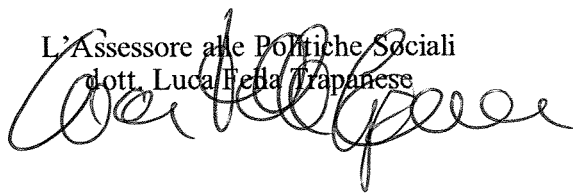 L'Assessore alle Politiche Sociali
dott. Luca Fella Trapanese